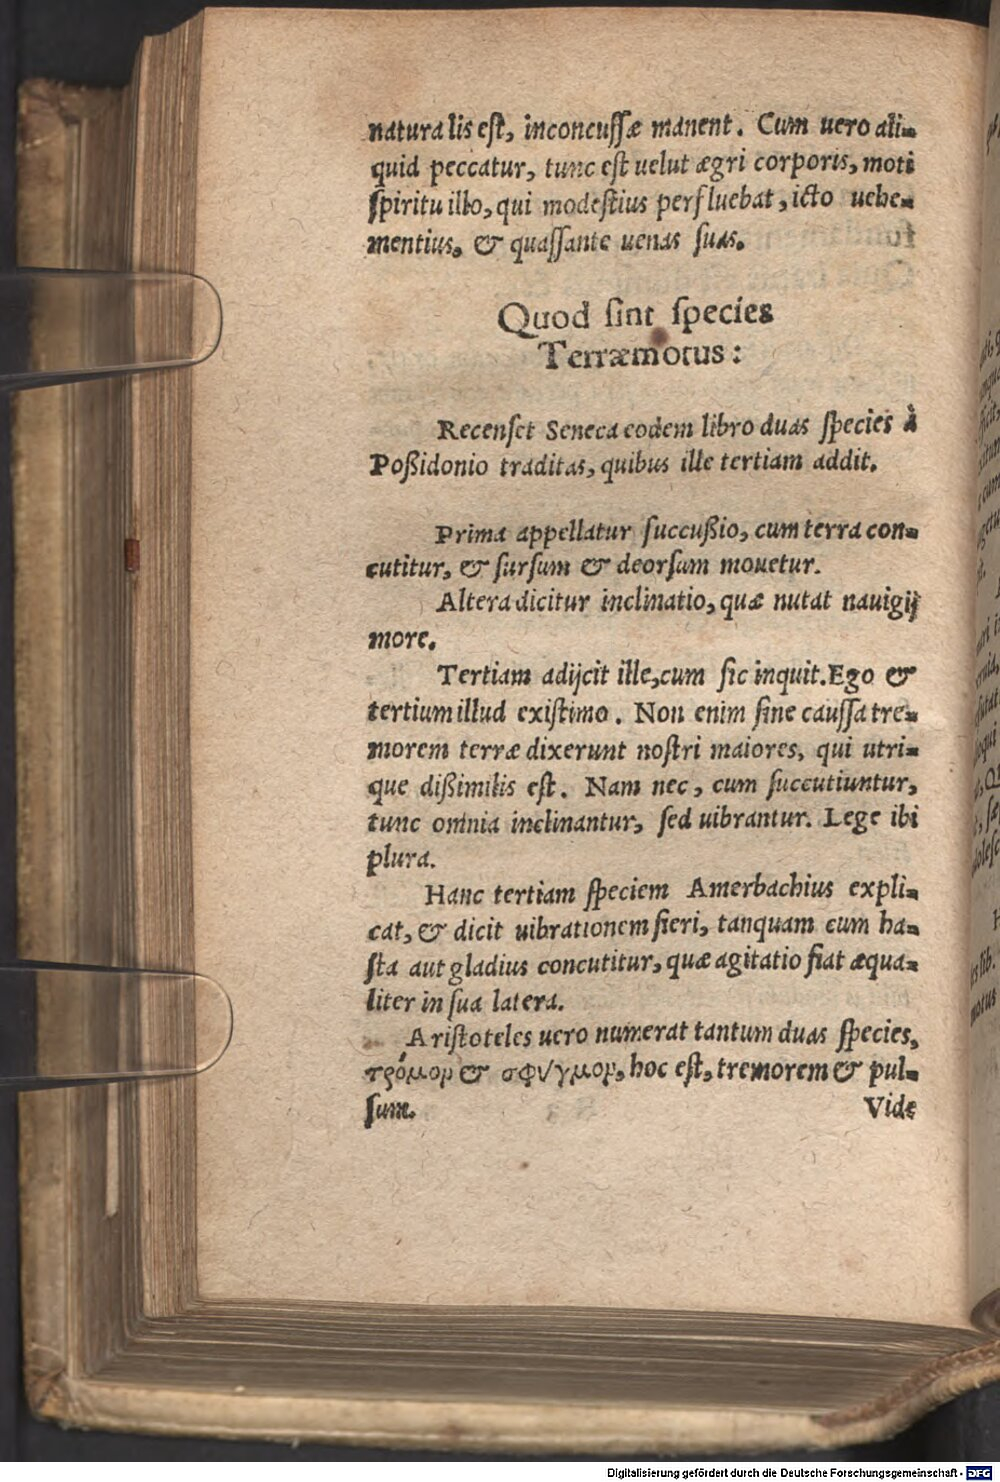 naturalis est, inconcussæ manent. Cum uero ali-
quid peccatur, tunc est uelut ægri corporis, moti
spiritu illo, qui modestius perfluebat, icto uehe-
mentius, & quassante uenas suas.
Quod sint species
Terræmotus:
Recenset Seneca eodem libro duas species à
Poßidonio traditas, quibus ille tertiam addit.
Prima appellatur succußio, cum terra con-
cutitur, & sursum & deorsum mouetur.
Altera dicitur inclinatio, quæ nutat nauigij
more.
Tertiam adijcit ille, cum sic inquit. Ego &
tertium illud existimo. Non enim sine caussa tre-
morem terræ dixerunt nostri maiores, qui utri-
que dißimilis est. Nam nec, cum succutiuntur,
tunc omnia inclinantur, sed uibrantur. Lege ibi
plura.
Hanc tertiam speciem Amerbachius expli-
cat, & dicit uibrationem fieri, tanquam cum ha-
sta aut gladius concutitur, quæ agitatio fiat æqua-
liter in sua latera.
Aristoteles uero numerat tantum duas species,
τρόμον & σφυγμον, hoc est, tremorem & pul-
sum.
Vide
Digitalisierung gefördert durch die Deutsche Forschungsgemeinschaft - DFG